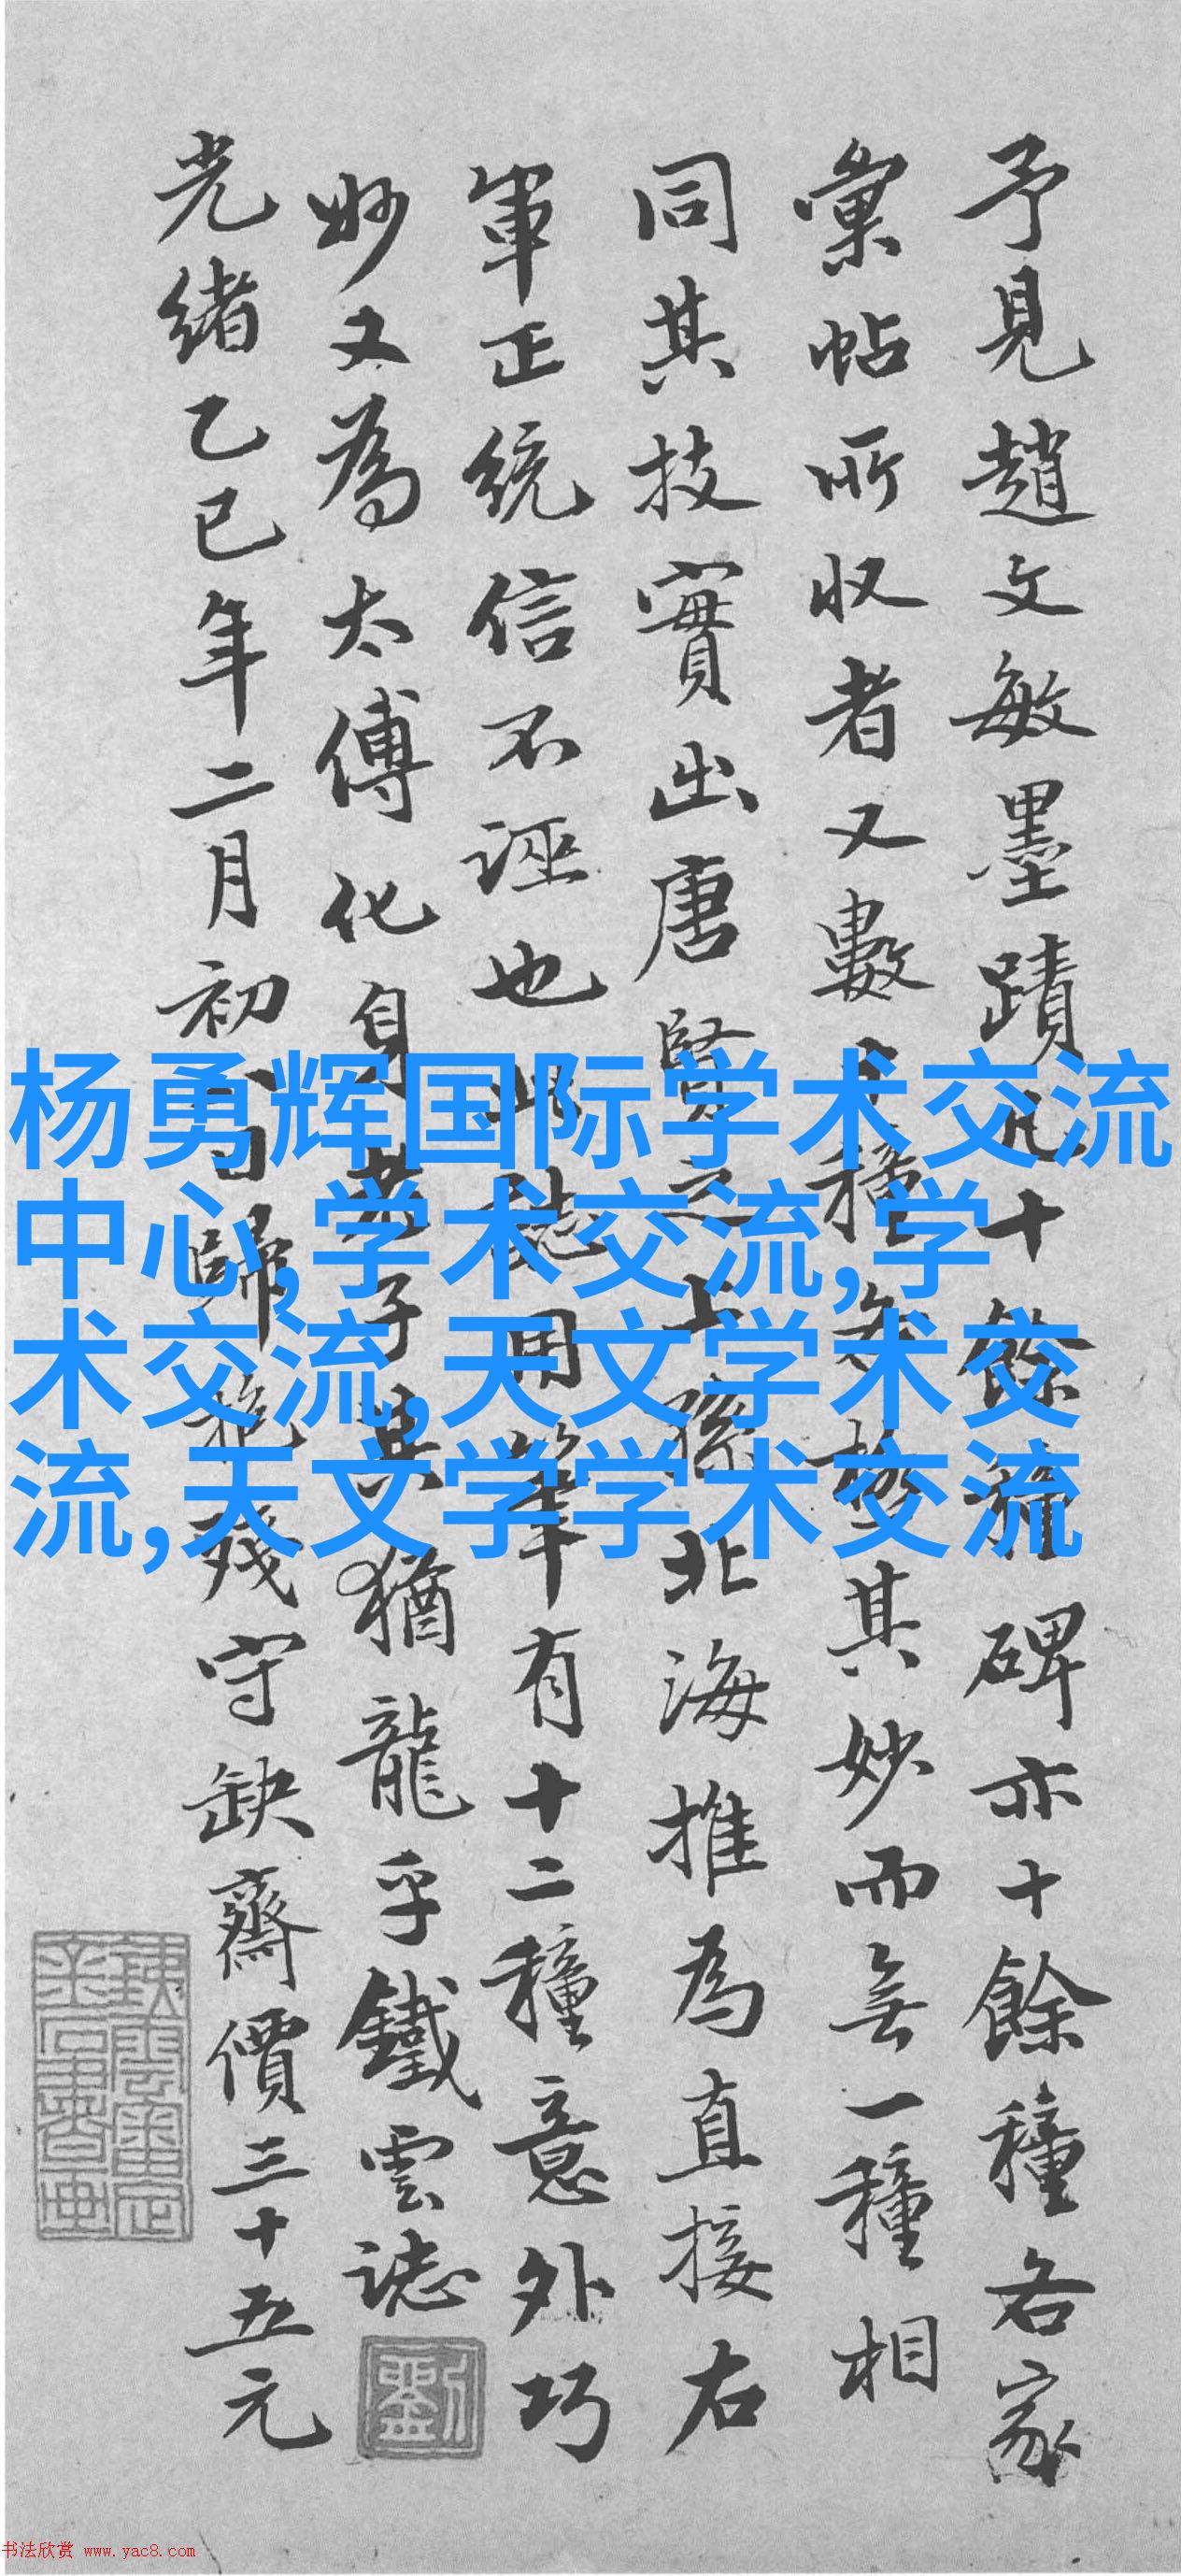 予見趙文敏墨蹟凡十餘種碑亦十餘種各家
彙帖所收者又數十種無極其妙而無一種相
同其技實出唐賢之上孫北海推為直接右
軍正統信不誣也此誌用筆有十二種意外巧
妙又為太傅化身老子其猶龍乎鐵雲誌
光緒乙巳年二月初八日歸抱殘守缺齋價三十五元
劉
杨勇辉国际学术交流
中心,学术交流,学
术交流,天文学术交
流,天文学学术交流
书法欣赏 www.yac8.com